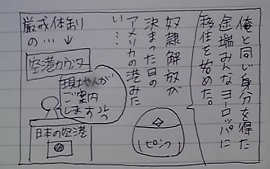 俺と同じ身分を得た
途端みんなヨーロッパに
移住を始めた。
奴隷解放が
決まった日の
アメリカの港みた
い…
ピンク
厳戒体制
の…
空港カウンタ
現地人が
ご案内
します
日本の空港